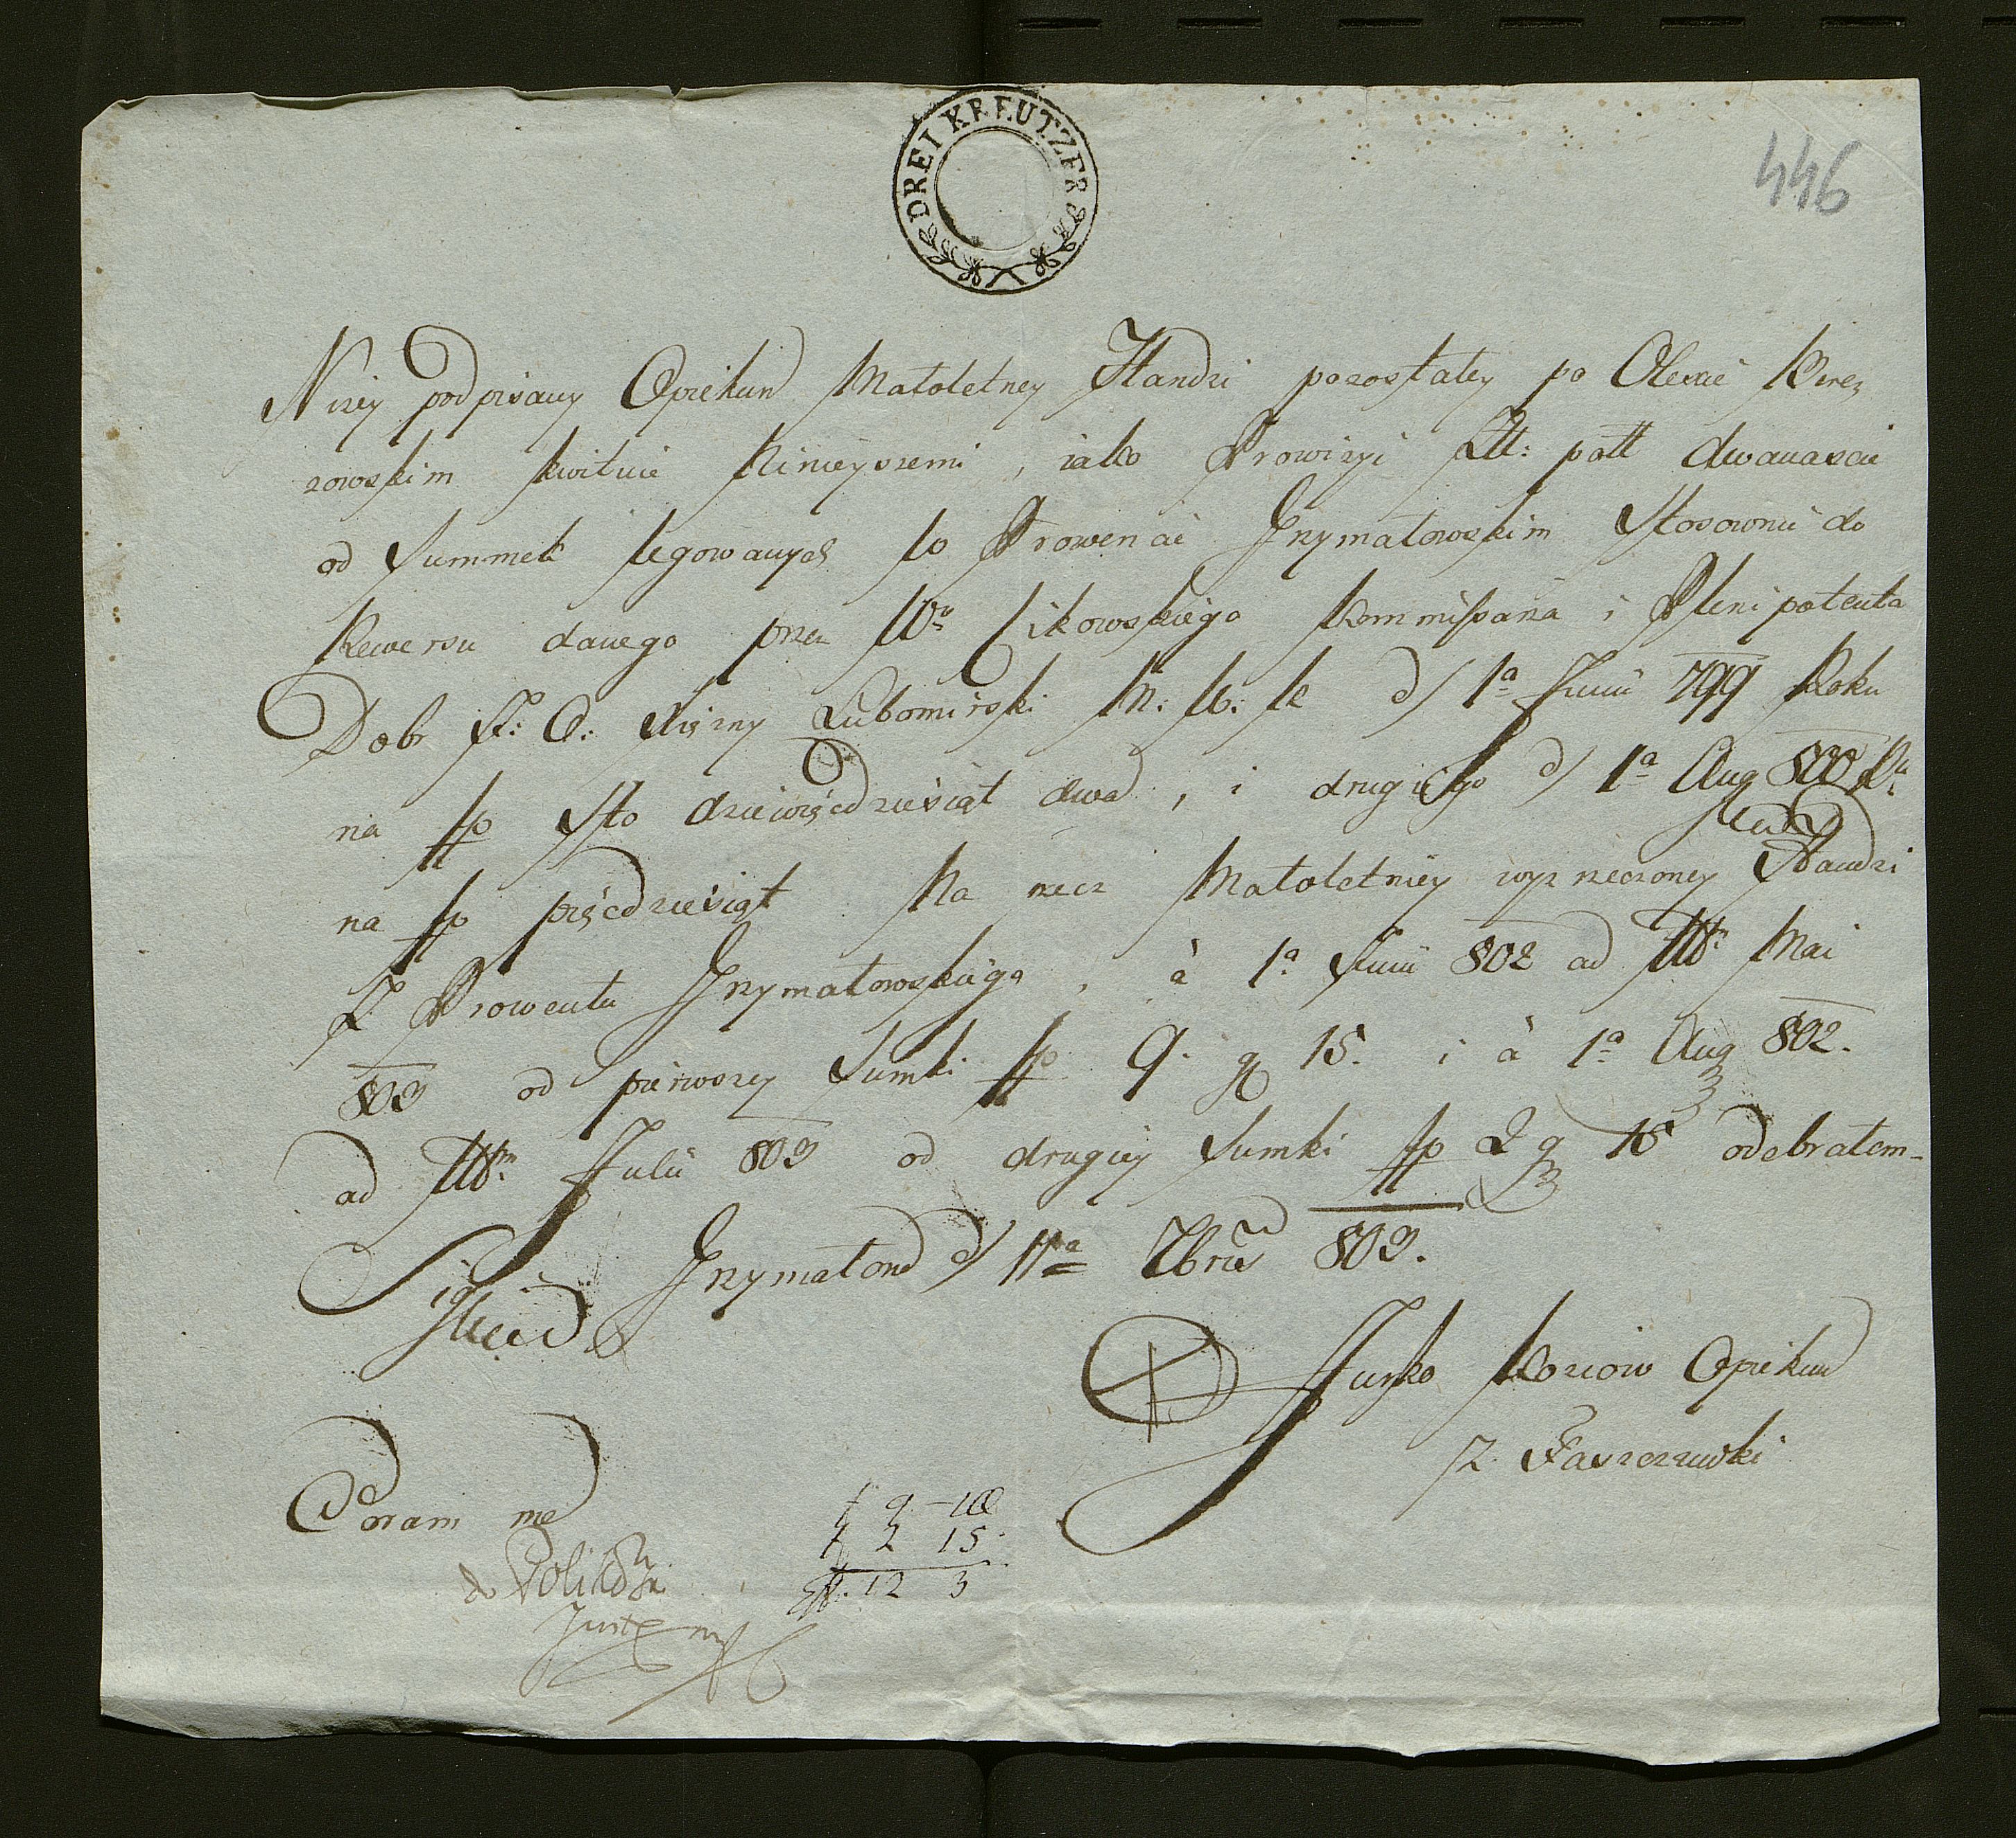 DREI KREUTZER
446
Niżey podpisany Opiekun Małoletney Handzi pozostałey po Olexie Berez
zowskim kwituię Ninieyszemi, iako Prowizyi Złł: poll dwanascie
od Summek legowanych do Prowencie Grzymałowskim Stosownie do
Rewersu danego przez W° Cikowskiego Kommissarza i Plenipotenta
Dobr J: O: Xiężny Lubomirski M: W: K d/ 1ª Junii 799 Roku
na fp Sto dziewięćdziesiąt dwa, i drugiego d/ 1ª Aug 800 Ru
na fp pięćdziesiąt Na rzecz Małoletniey wyż rzeczoney Handzi
Z Prowentu Grzymałowskiego, à 1ª Junii 802 ad Ult Mai
803 od pierwszey Sumki fp 9. g 18. i à 1ª Aug 802.
ad Ult Julii 803 od drugiey Sumki fp 2 g 15 odebrałem
Sig Grzymałow d/ 11ª 7bris 803.
Jusko Koziow Opiekun
Z Faszczowki
Coram me
9 – 18
2 15
12 3